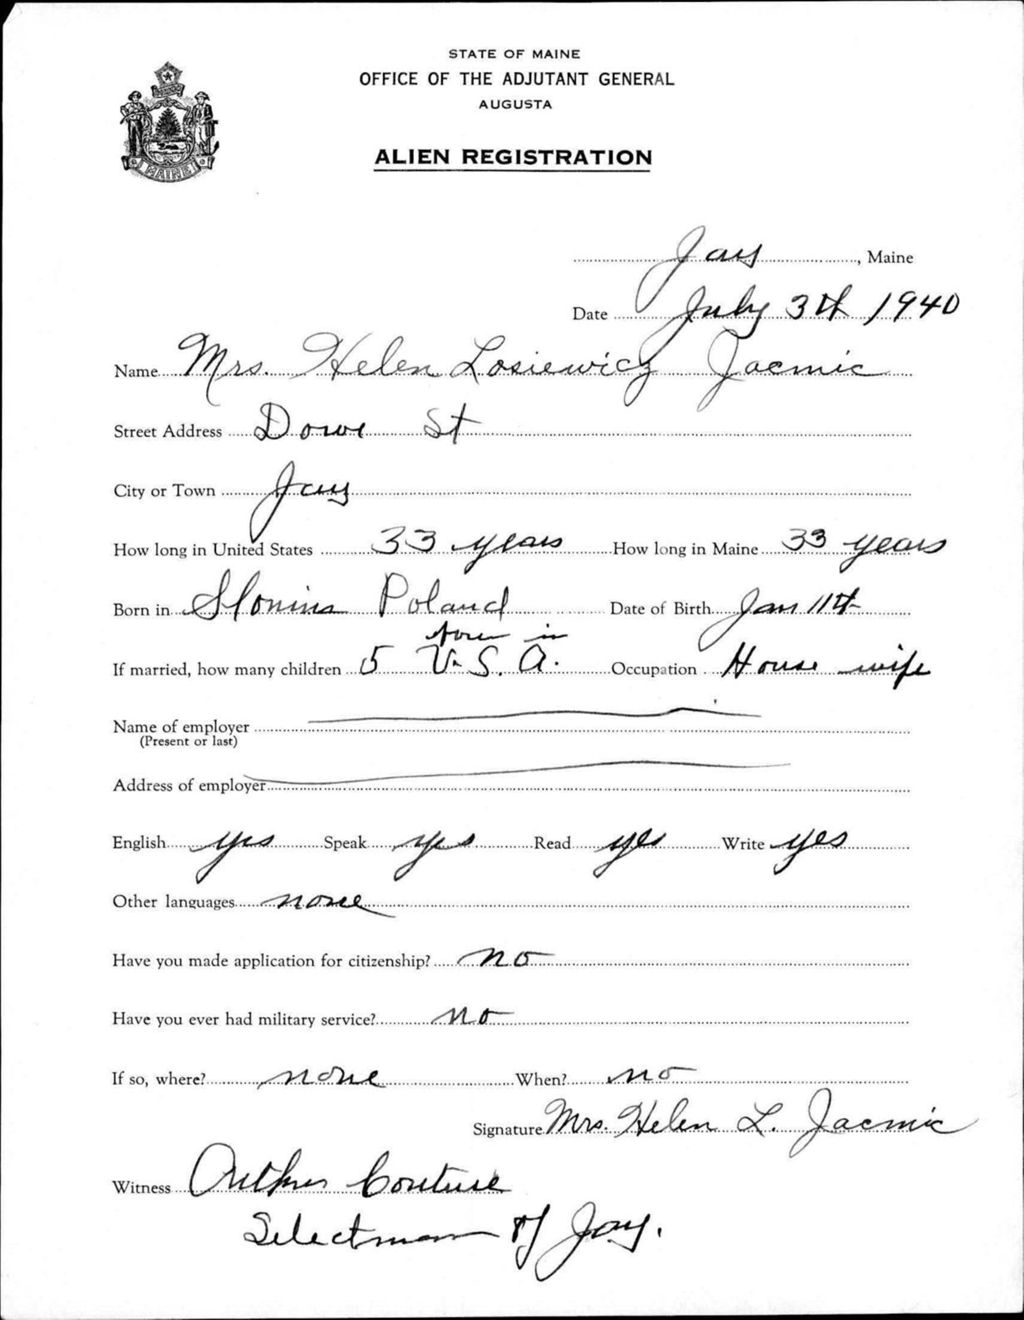 STATE OF MAINE
OFFICE OF THE ADJUTANT GENERAL
AUGUSTA
ALIEN REGISTRATION
MAINE
Jay, Maine
Date July 3rd 1940
Name Mrs. Helen Losiewicz Jacmic
Street Address Dowe St
City or Town Jay
How long in United States 33 years How long in Maine 33 years
Born in Poland Date of Birth Jan 11th
born in
If married, how many children 5 U.S.A. Occupation House wife
Name of employer
(Present or last)
Address of employer
English yes Speak yes Read yes Write yes
Other languages none
Have you made application for citizenship? no
Have you ever had military service? no
If so, where? none When? no
Signature Mrs. Helen L. Jacmic
Witness Arthur Couture
Selectman of Jay.